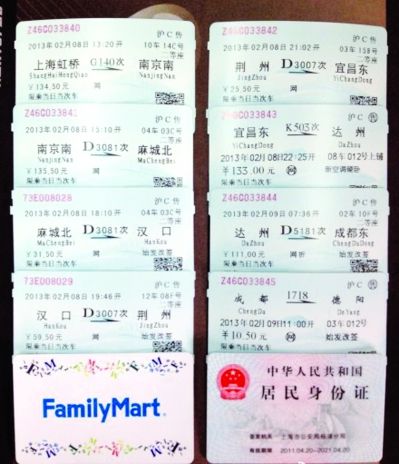 Z46C033840 沪C售
2013年02月08日 13:20开 10车14C号
二等座
上海虹桥 G140次 南京南
ShangHaiHongQiao NanJingNan
¥134.50元 网
限乘当日当次车
Z46C033841 沪C售
2013年02月08日 15:10开 04车03C号
二等座
南京南 D3081次 麻城北
NanJingNan MaChengBei
¥135.50元 网
限乘当日当次车
73E008028 沪C售
2013年02月08日 18:10开 04车03C号
二等座
麻城北 D3081次 汉口
MaChengBei HanKou
¥31.50元 网 始发改签
限乘当日当次车
73E008029 沪C售
2013年02月08日 19:46开 12车08F号
二等座
汉口 D3007次 荆州
HanKou JingZhou
¥59.50元 网 始发改签
限乘当日当次车
FamilyMart
Z46C033842 沪C售
2013年02月08日 21:02开 03车15B号
二等座
荆州 D3007次 宜昌东
JingZhou YiChangDong
¥25.50元 网
限乘当日当次车
Z46C033843 沪C售
宜昌东 K503次 达州
YiChangDong DaZhou
2013年02月08日22:25开 08车012号上铺
¥133.00元 网 新空调硬卧
限乘当日当次车
Z46C033844 沪C售
2013年02月09日 07:36开 02车10F号
二等座
达州 D5181次 成都东
DaZhou ChengDuDong
¥111.00元 网折 始发改签
限乘当日当次车
Z46C033845 沪C售
成都 1718 德阳
ChengDu DeYang
2013年02月09日11:00开 03车012号
¥10.50元 网 始发改签
限乘当日当次车
中华人民共和国
居民身份证
签发机关 上海市公安局杨浦分局
有效期限 2011.04.20-2021.04.20